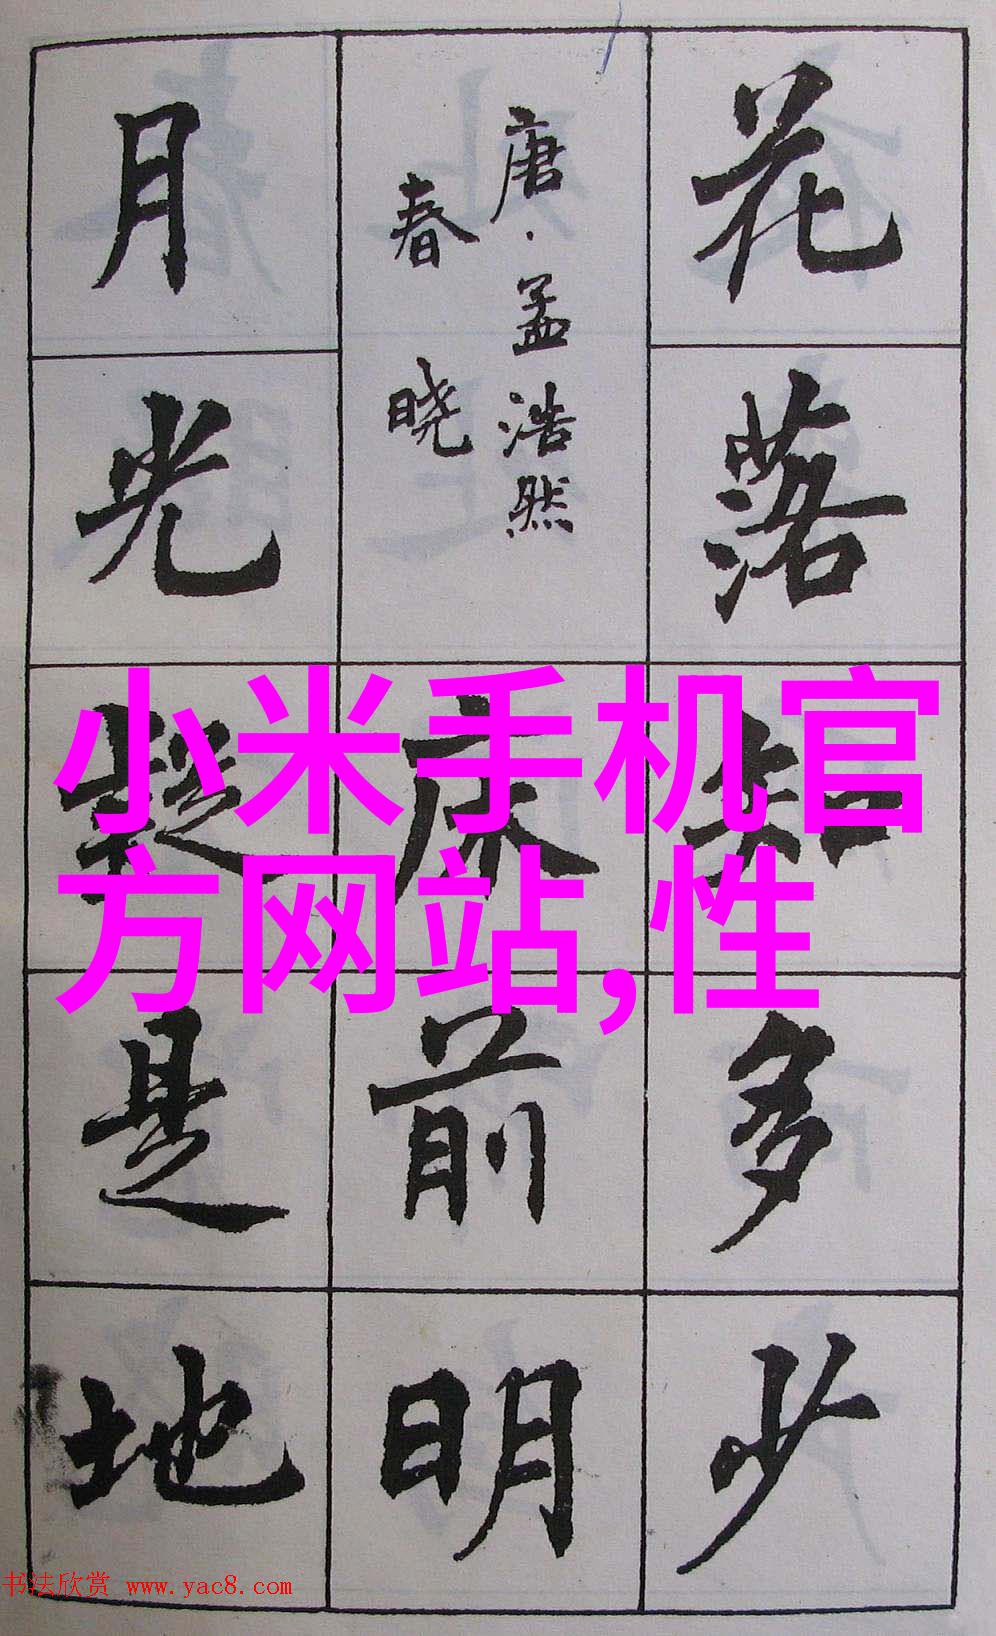 花落知多少
唐·孟浩然
春晓
床前明
月光疑是地
小米手机官
方网站,性
书法欣赏 www.yac8.com